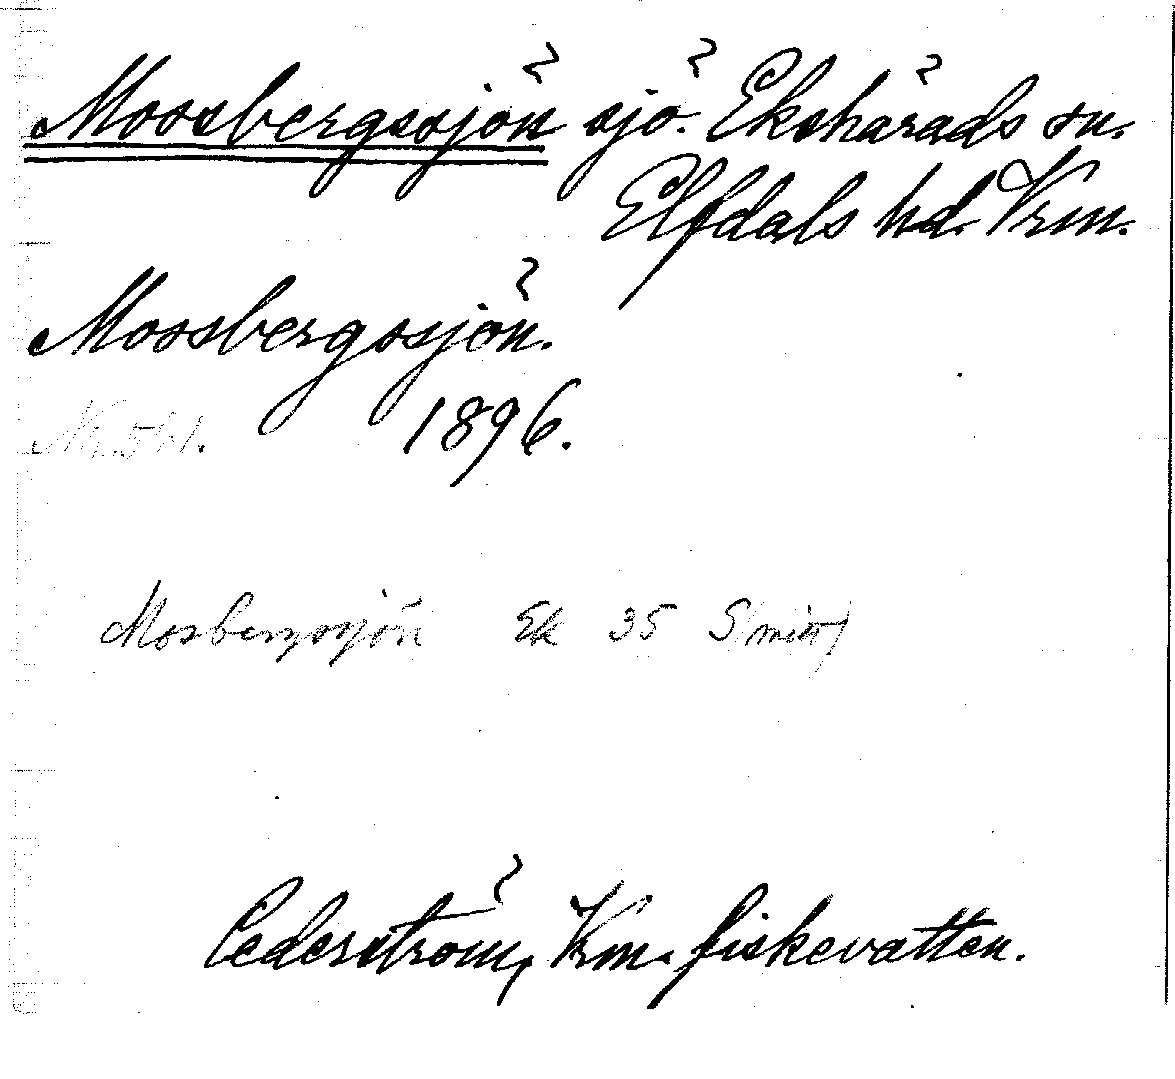 Mossbergssjön sjö. Ekshärads sn.
Elfdals hd. Vrm.
Mossbergssjön.
1896.
Mosbergssjön Ek 35 S(mitt)
Cederström, Vrm. fiskevatten.